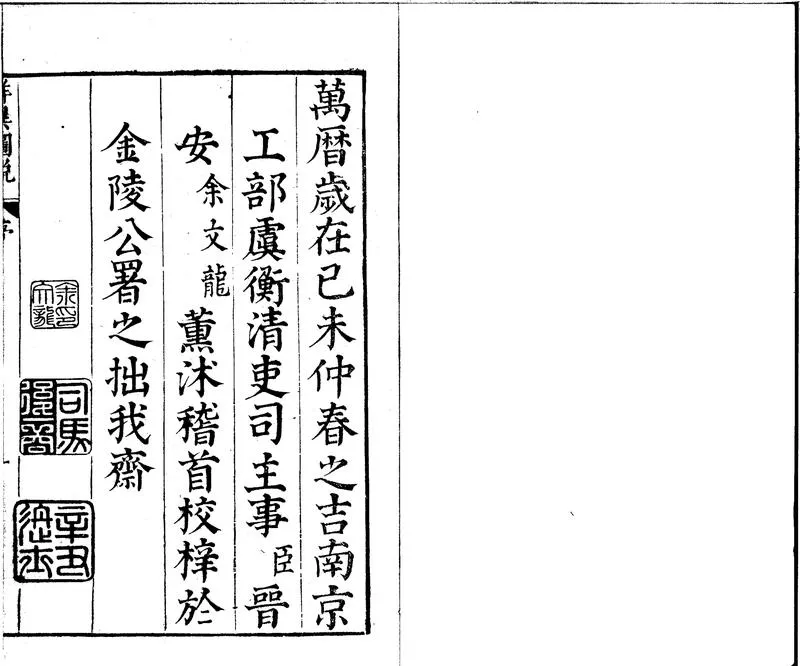 萬曆歲在己未仲春之吉南京
工部虞衡清吏司主事臣晉
安余文龍薰沐稽首校梓於
金陵公署之拙我齋
余文龍印
司馬
辛丑進士
祥異圖說
序